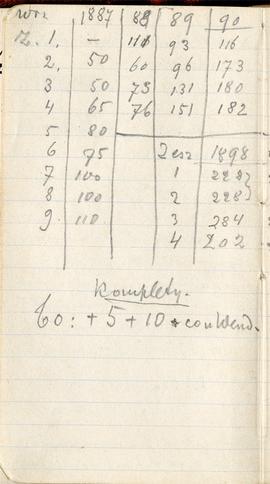 1887 88 89 90
Z. 1. – 111 93 116
2. 50 60 96 173
3 50 73 131 180
4 65 76 151 182
5 80
6 95 Zesz 1898
7 100 1 228
8 100 2 228
9. 110 3 284
4 202
Komplety.
60: + 5 + 10 +